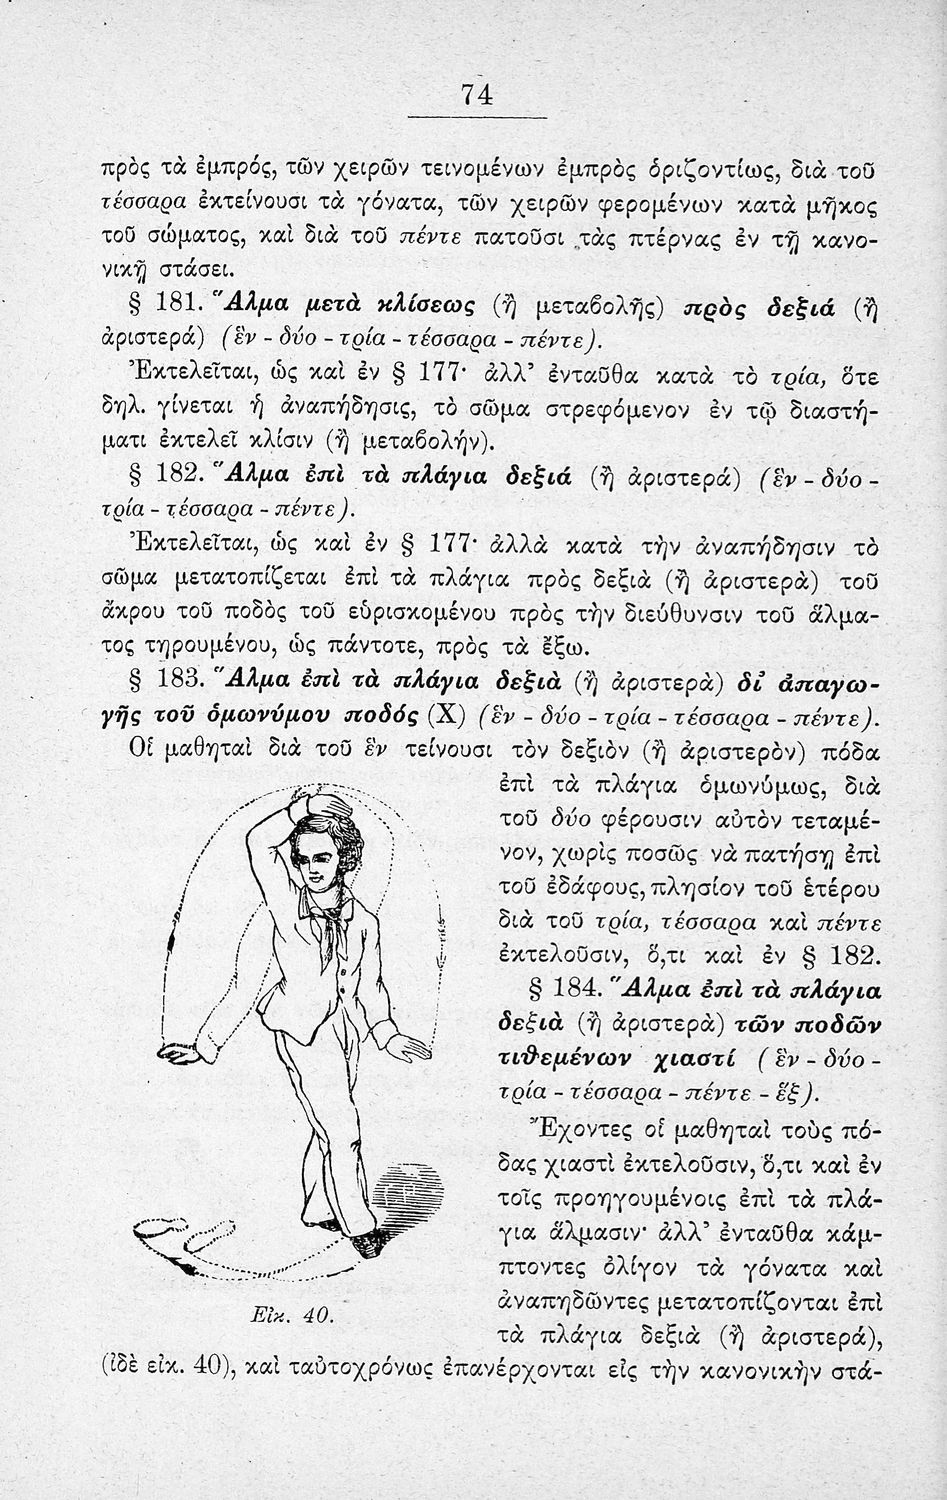 74
πρὸς τὰ ἐμπρός, τῶν χειρῶν τεινομένων ἐμπρὸς ὁριζοντίως, διὰ τοῦ
τέσσαρα ἐκτείνουσι τὰ γόνατα, τῶν χειρῶν φερομένων κατὰ μῆκος
τοῦ σώματος, καὶ διὰ τοῦ πέντε πατοῦσι τὰς πτέρνας ἐν τῇ κανο-
νικῇ στάσει.
§ 181. Ἅλμα μετὰ κλίσεως (ἢ μεταβολῆς) πρὸς δεξιά (ἢ
ἀριστερά) (ἓν - δύο - τρία - τέσσαρα - πέντε).
Ἐκτελεῖται, ὡς καὶ ἐν § 177· ἀλλ' ἐνταῦθα κατὰ τὸ τρία, ὅτε
δηλ. γίνεται ἡ ἀναπήδησις, τὸ σῶμα στρεφόμενον ἐν τῷ διαστή-
ματι ἐκτελεῖ κλίσιν (ἢ μεταβολήν).
§ 182. Ἅλμα ἐπὶ τὰ πλάγια δεξιά (ἢ ἀριστερά) (ἓν - δύο -
τρία - τέσσαρα - πέντε).
Ἐκτελεῖται, ὡς καὶ ἐν § 177· ἀλλὰ κατὰ τὴν ἀναπήδησιν τὸ
σῶμα μετατοπίζεται ἐπὶ τὰ πλάγια πρὸς δεξιὰ (ἢ ἀριστερὰ) τοῦ
ἄκρου τοῦ ποδὸς τοῦ εὑρισκομένου πρὸς τὴν διεύθυνσιν τοῦ ἅλμα-
τος τηρουμένου, ὡς πάντοτε, πρὸς τὰ ἔξω.
§ 183. Ἅλμα ἐπὶ τὰ πλάγια δεξιὰ (ἢ ἀριστερὰ) δι' ἀπαγω-
γῆς τοῦ ὁμωνύμου ποδός (Χ) (ἓν - δύο - τρία - τέσσαρα - πέντε).
Οἱ μαθηταὶ διὰ τοῦ ἓν τείνουσι τὸν δεξιὸν (ἢ ἀριστερὸν) πόδα
ἐπὶ τὰ πλάγια ὁμωνύμως, διὰ
τοῦ δύο φέρουσιν αὐτὸν τεταμέ-
νον, χωρὶς ποσῶς νὰ πατήσῃ ἐπὶ
τοῦ ἐδάφους, πλησίον τοῦ ἑτέρου
διὰ τοῦ τρία, τέσσαρα καὶ πέντε
ἐκτελοῦσιν, ὅ,τι καὶ ἐν § 182.
§ 184. Ἅλμα ἐπὶ τὰ πλάγια
δεξιὰ (ἢ ἀριστερὰ) τῶν ποδῶν
τιθεμένων χιαστί (ἓν - δύο -
τρία - τέσσαρα - πέντε - ἕξ).
Ἔχοντες οἱ μαθηταὶ τοὺς πό-
δας χιαστὶ ἐκτελοῦσιν, ὅ,τι καὶ ἐν
τοῖς προηγουμένοις ἐπὶ τὰ πλά-
για ἅλμασιν· ἀλλ' ἐνταῦθα κάμ-
πτοντες ὀλίγον τὰ γόνατα καὶ
ἀναπηδῶντες μετατοπίζονται ἐπὶ
τὰ πλάγια δεξιὰ (ἢ ἀριστερά),
Εἰκ. 40.
(ἰδὲ εἰκ. 40), καὶ ταὐτοχρόνως ἐπανέρχονται εἰς τὴν κανονικὴν στά-